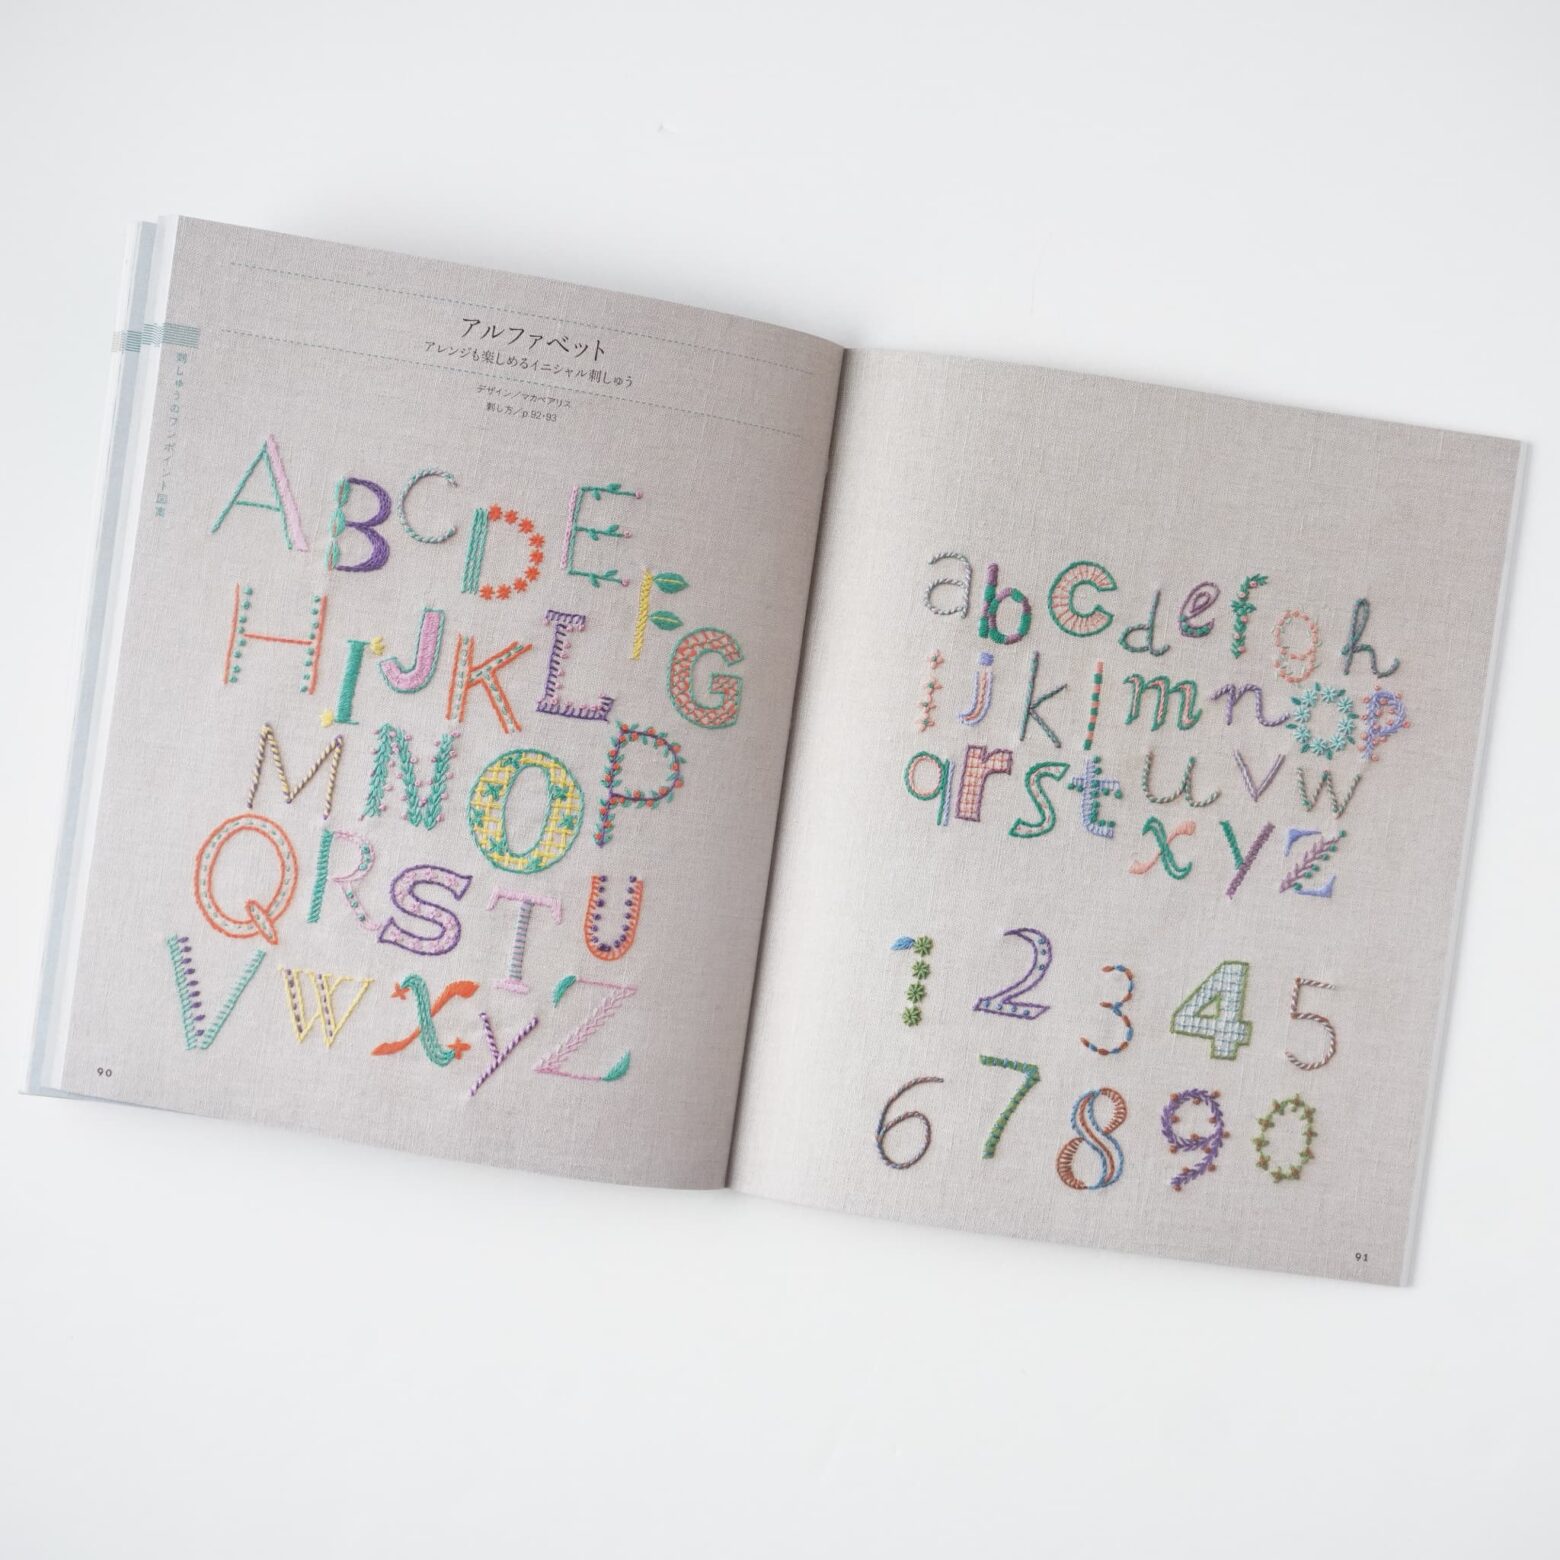 刺しゅうのワンポイント図案
アルファベット
アレンジも楽しめるイニシャル刺しゅう
デザイン／マカベアリス
刺し方／p.92・93
ABCDEF
HIJKLG
MNOP
QRSTU
VWXYZ
90
abcdefgh
ijklmnop
qrstuvw
xyz
12345
67890
91